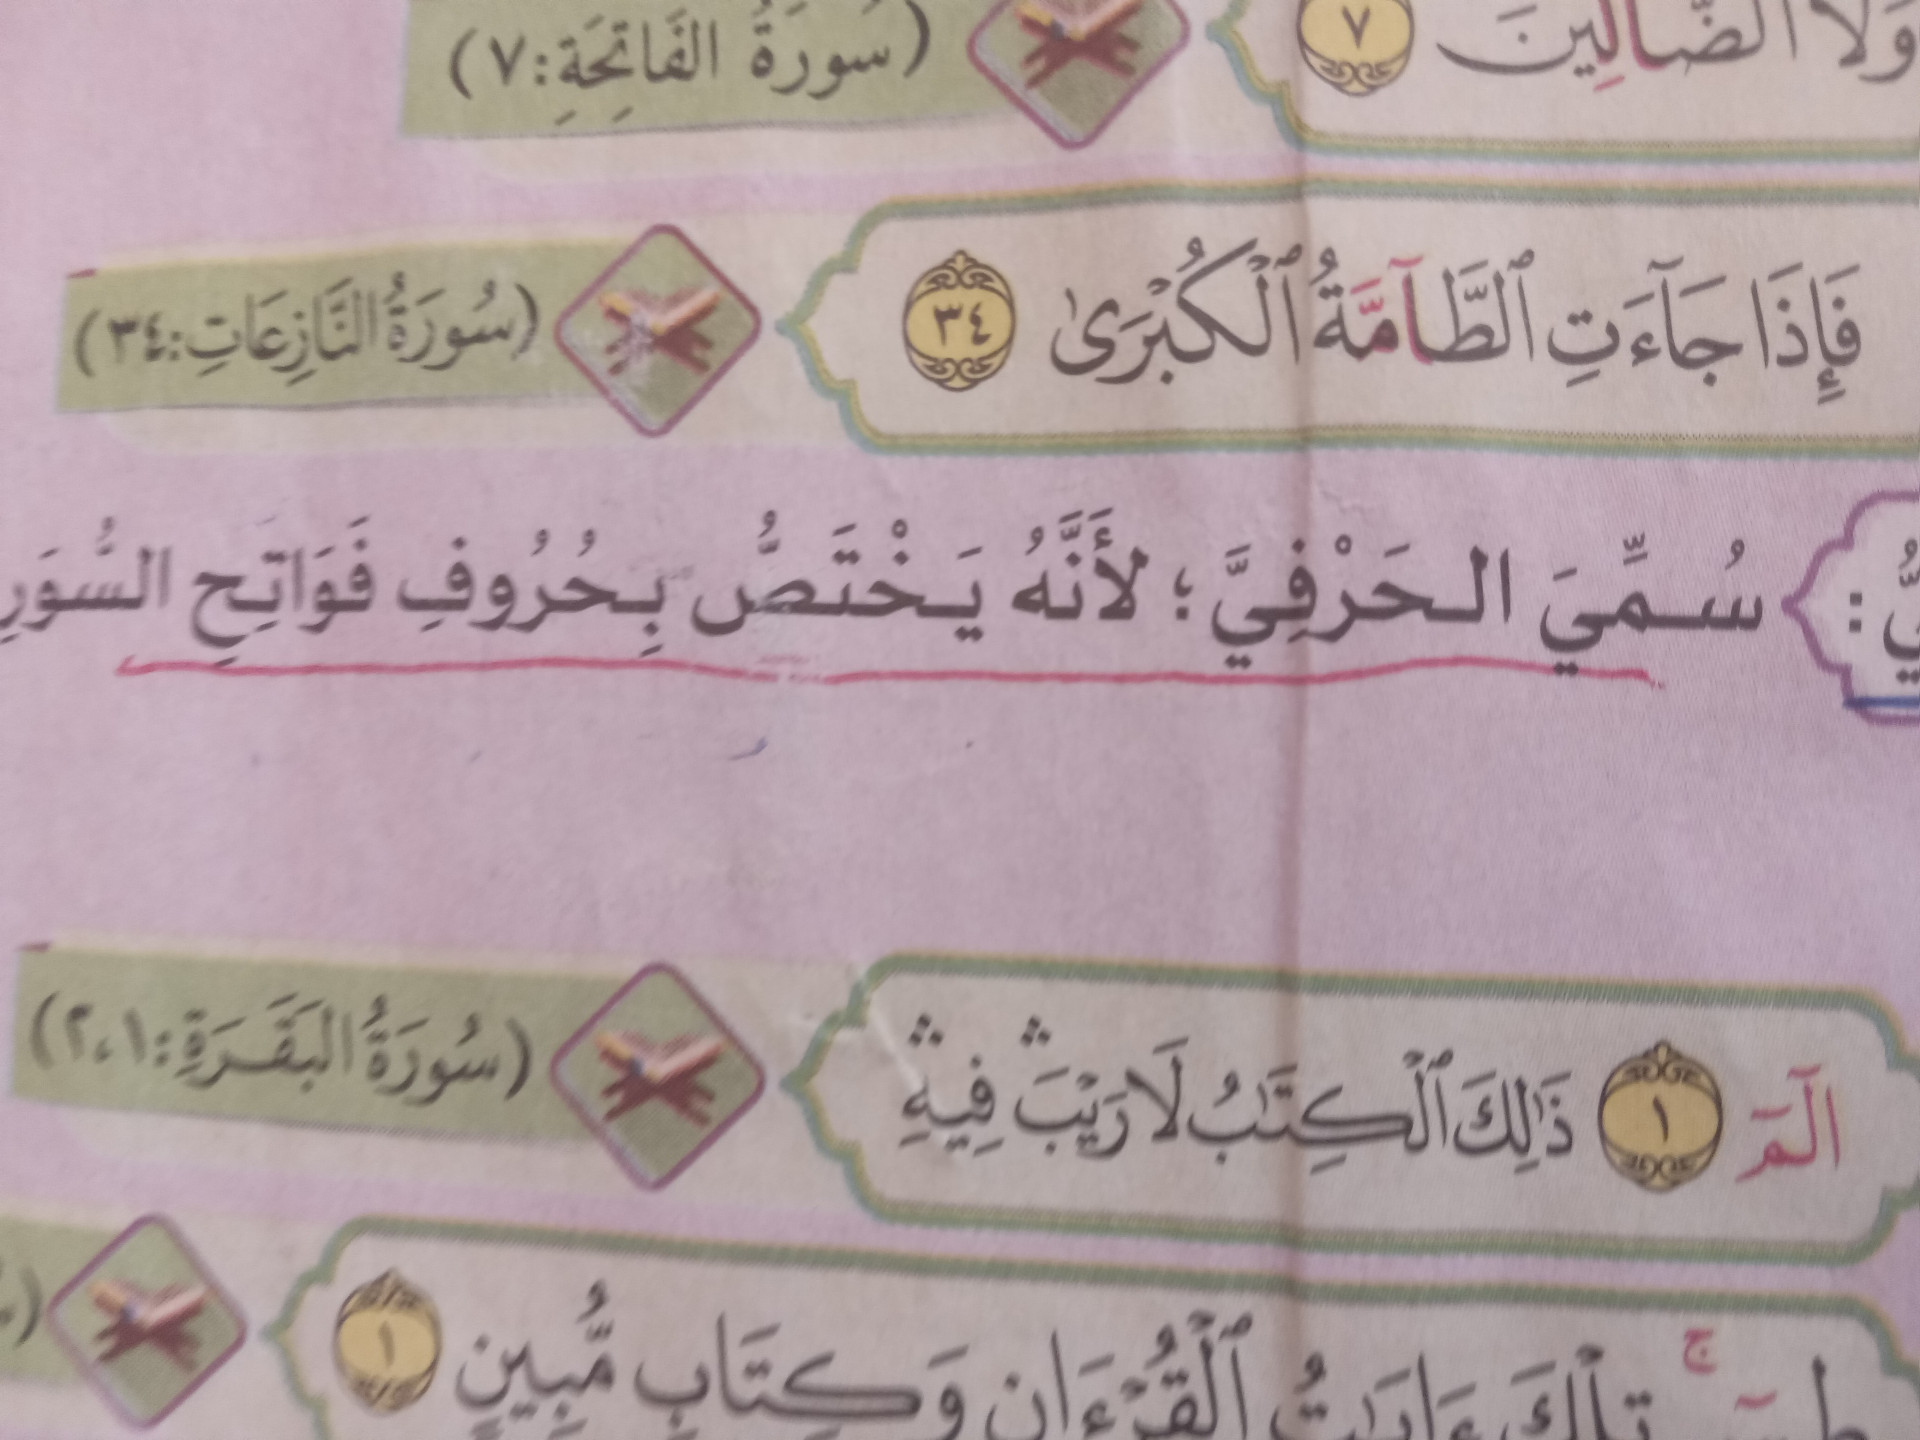 وَلَا ٱلضَّآلِّينَ ٧ (سُورَةُ الفَاتِحَةِ:٧)
فَإِذَا جَآءَتِ ٱلطَّآمَّةُ ٱلْكُبْرَىٰ ٣٤ (سُورَةُ النَّازِعَاتِ:٣٤)
يُّ : سُمِّيَ الحَرْفِيَّ؛ لأَنَّهُ يَخْتَصُّ بِحُرُوفِ فَوَاتِحِ السُّوَرِ
الٓمٓ ١ ذَٰلِكَ ٱلْكِتَٰبُ لَا رَيْبَ ۛ فِيهِ ۛ (سُورَةُ البَقَرَةِ:١،٢)
طسٓ ۚ تِلْكَ ءَايَٰتُ ٱلْقُرْءَانِ وَكِتَابٍ مُّبِينٍ ١